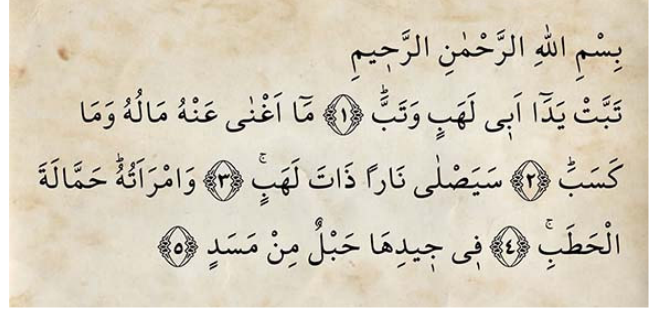 بِسْمِ اللهِ الرَّحْمٰنِ الرَّحٖيمِ
تَبَّتْ يَدَٓا اَبٖى لَهَبٍ وَتَبَّۜ ﴿١﴾ مَٓا اَغْنٰى عَنْهُ مَالُهُ وَمَا
كَسَبَۜ ﴿٢﴾ سَيَصْلٰى نَاراً ذَاتَ لَهَبٍۚ ﴿٣﴾ وَامْرَاَتُهُۜ حَمَّالَةَ
الْحَطَبِۚ ﴿٤﴾ فٖى جٖيدِهَا حَبْلٌ مِنْ مَسَدٍ ﴿٥﴾